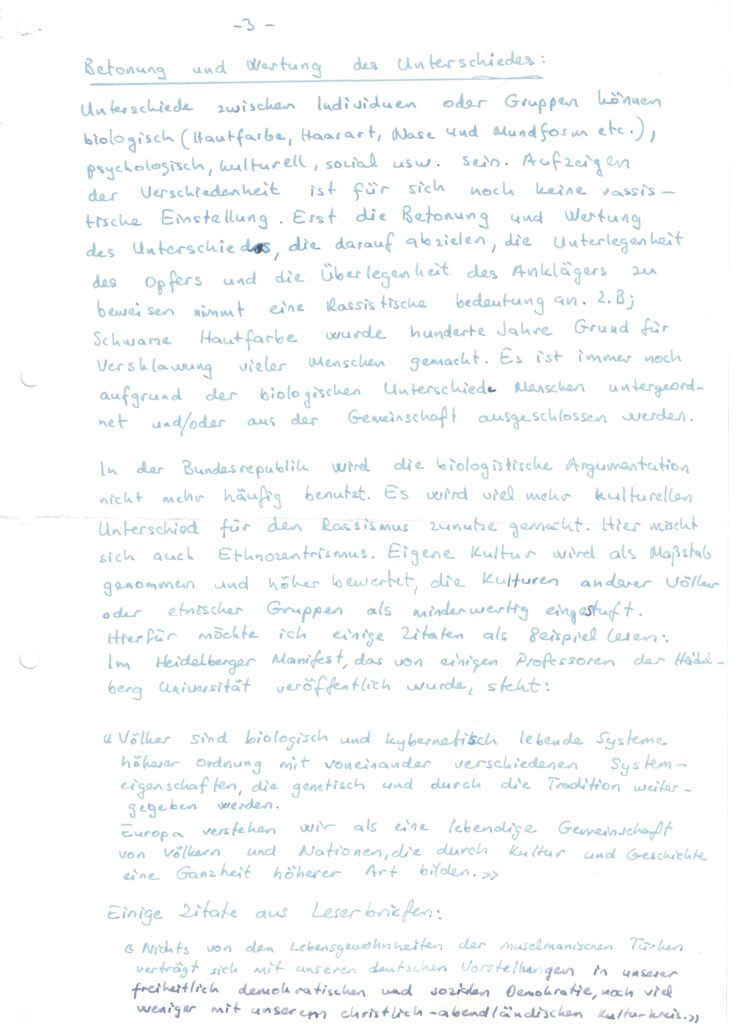 -3-
Betonung und Wertung des Unterschiedes:
Unterschiede zwischen Individuen oder Gruppen können
biologisch (Hautfarbe, Haarart, Nase und Mundform etc.),
psychologisch, kulturell, sozial usw. sein. Aufzeigen
der Verschiedenheit ist für sich noch keine rassis-
tische Einstellung. Erst die Betonung und Wertung
des Unterschiedes, die darauf abzielen, die Unterlegenheit
des Opfers und die Überlegenheit des Anklägers zu
beweisen nimmt eine Rassistische bedeutung an. z.B;
Schwarze Hautfarbe wurde hunderte Jahre Grund für
Versklawung vieler Menschen gemacht. Es ist immer noch
aufgrund der biologischen Unterschiede Menschen untergeord-
net und/oder aus der Gemeinschaft ausgeschlossen werden.
In der Bundesrepublik wird die biologistische Argumentation
nicht mehr häufig benutzt. Es wird viel mehr kulturellen
Unterschied für den Rassismus zunutze gemacht. Hier mischt
sich auch Ethnozentrismus. Eigene Kultur wird als Maßstab
genommen und höher bewertet, die Kulturen anderer Völker
oder etnischer Gruppen als minderwertig eingestuft.
Hierfür möchte ich einige Zitaten als Beispiel lesen:
Im Heidelberger Manifest, das von einigen Professoren der Heidel-
berg Universität veröffentlich wurde, steht:
«Völker sind biologisch und kybernetisch lebende Systeme
höherer Ordnung mit voneinander verschiedenen System-
eigenschaften, die genetisch und durch die Tradition weiter-
gegeben werden.
Europa verstehen wir als eine lebendige Gemeinschaft
von Völkern und Nationen, die durch Kultur und Geschichte
eine Ganzheit höherer Art bilden.»
Einige Zitate aus Leserbriefen:
«Nichts von den Lebensgewohnheiten der muselmanischen Türken
verträgt sich mit unseren deutschen Vorstellungen in unserer
freiheitlich demokratischen und sozialen Demokratie, noch viel
weniger mit unserem christlich-abendländischen Kulturkreis.»